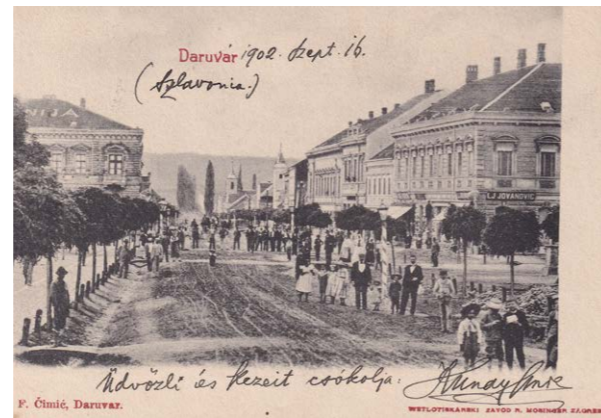 Daruvár 1902. Szept. 16.
(Szlavonia.)
I.J. JOVANOVIĆ
Üdvözli és kezeit csókolja:
F. Čimić, Daruvar.
SVETLOTISKARSKI ZAVOD R. MOSINGER ZAGREB